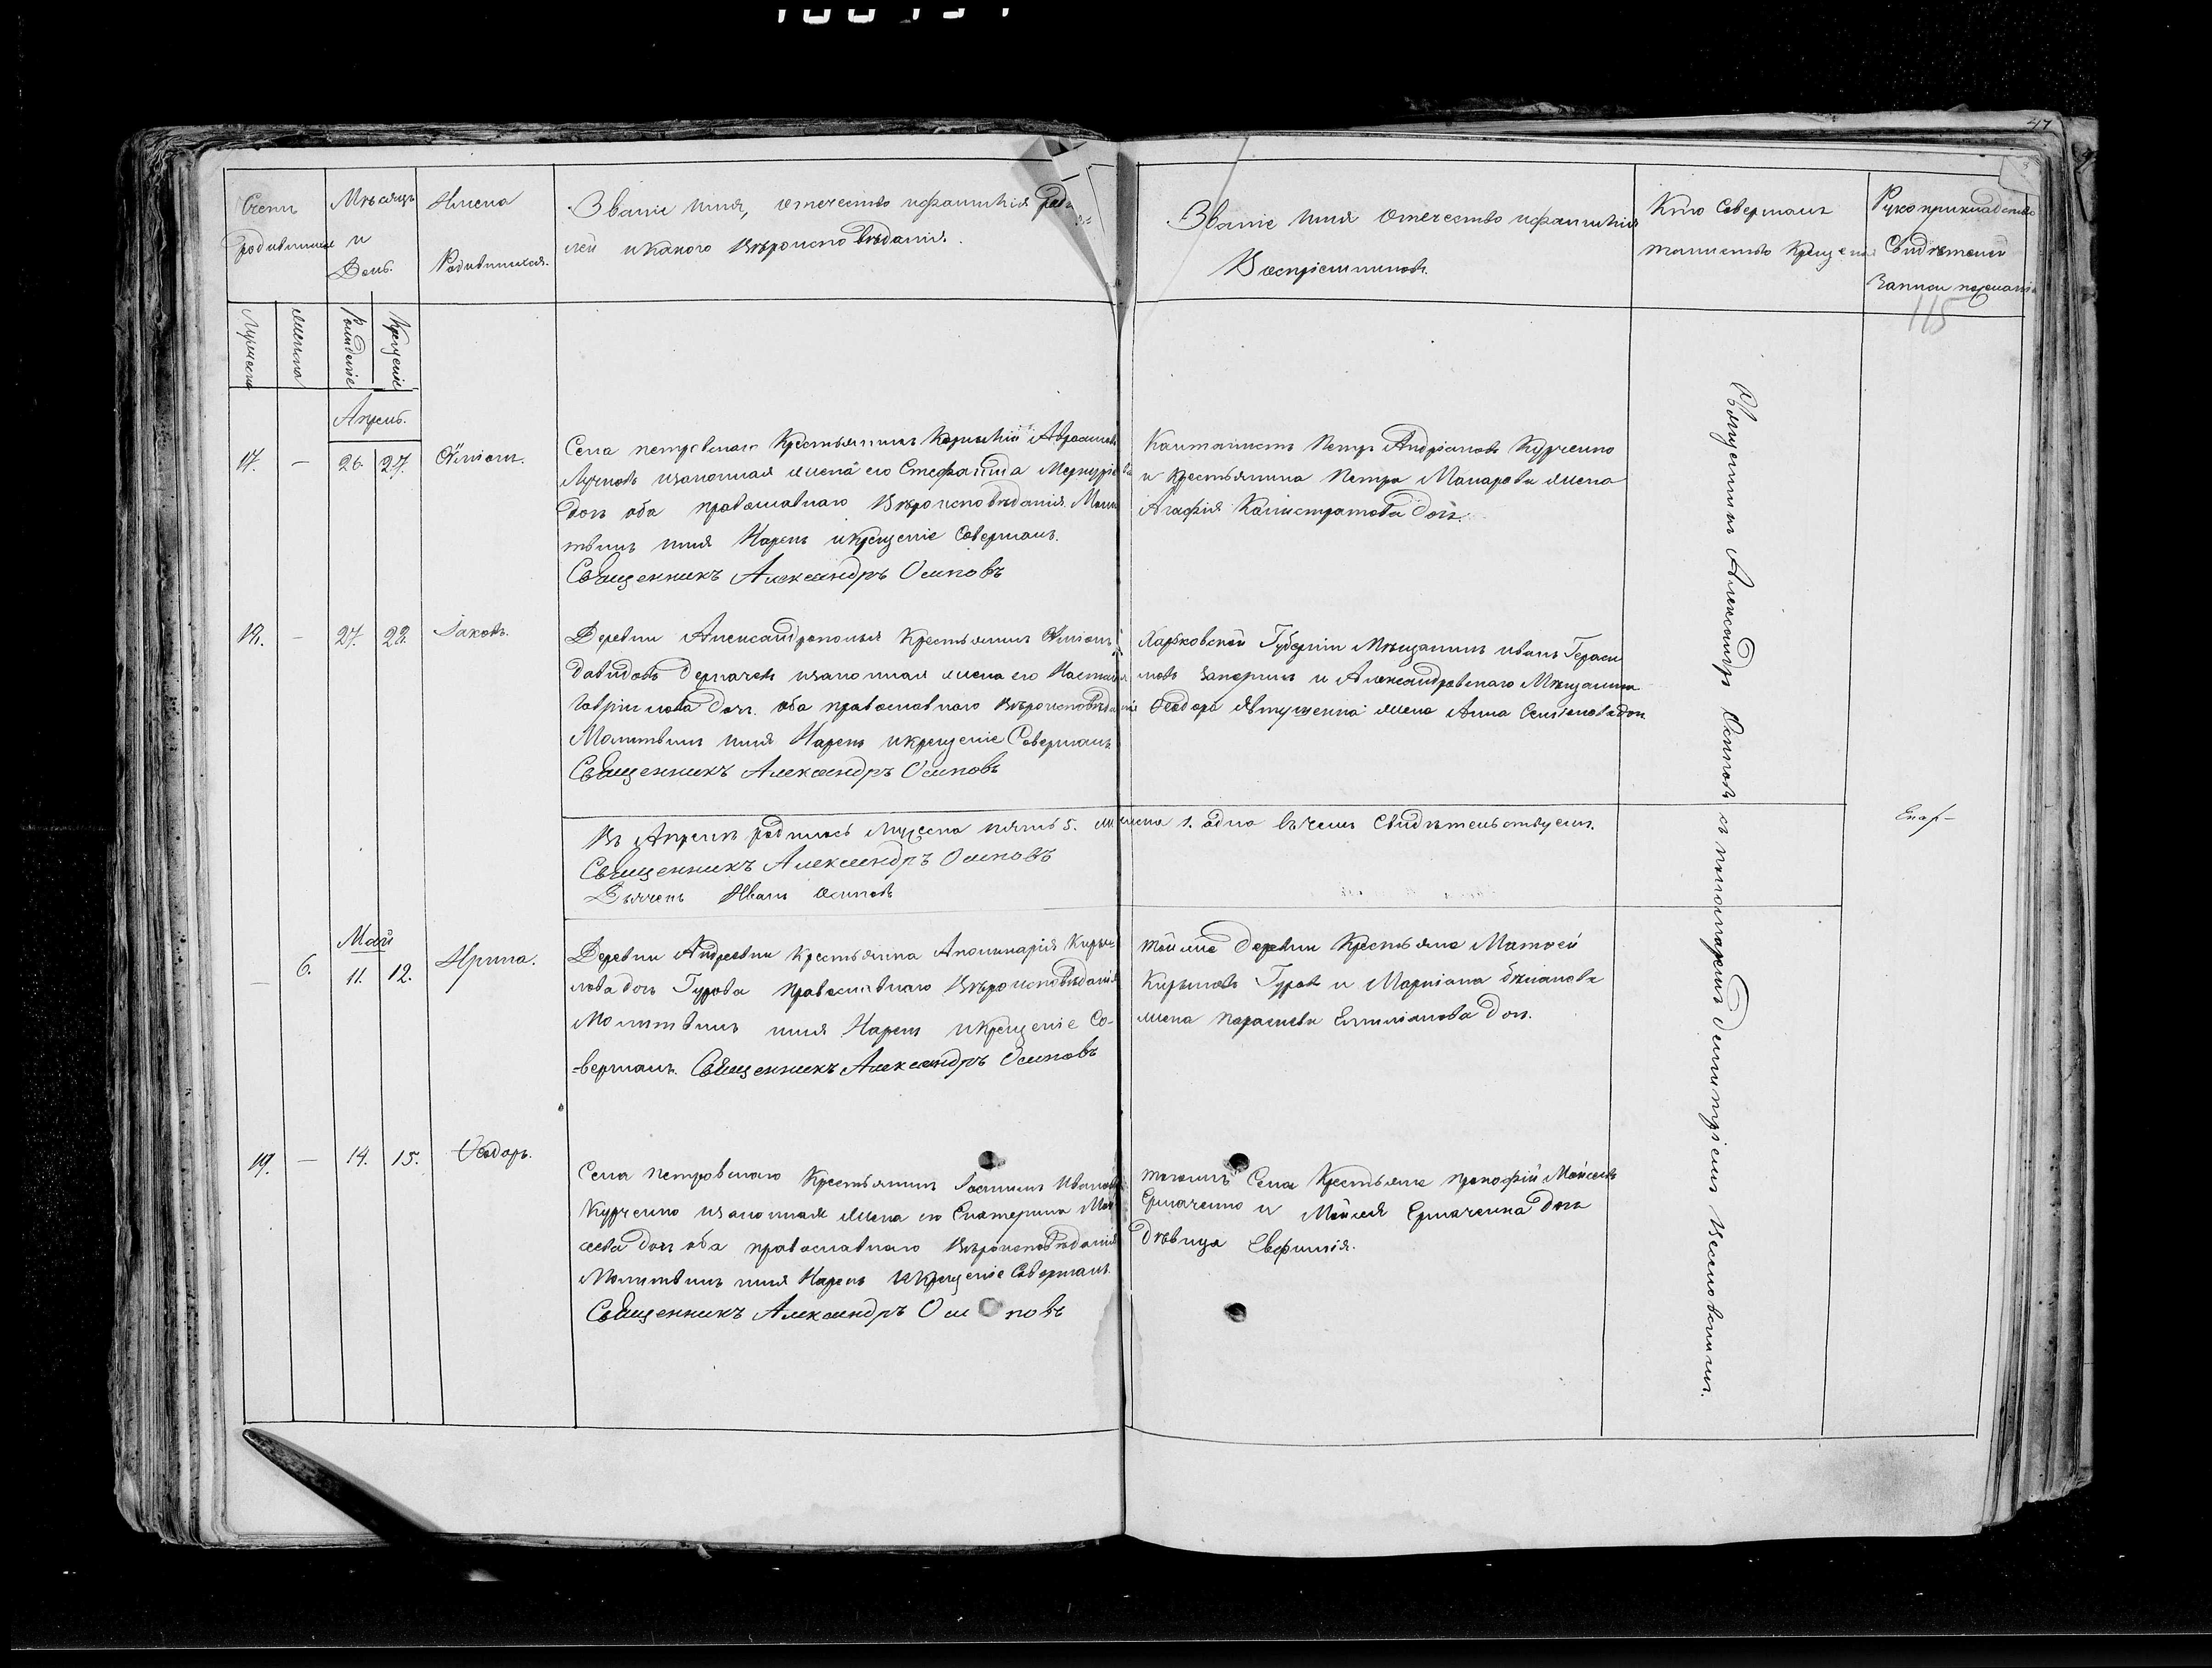 Счетъ родившихся
Мѣсяцъ и День.
Имена Родившихся.
Званіе имя, отечество и фамилія роди
лей и какого Вѣроисповѣданія.
Званіе имя отечество и фамилія
Воспріемниковъ.
Кто Совершалъ
таинство Крещенія
Рукоприкладство
Свидѣтелей
Записи по желанію
115
Мужеска
Женска
Рожденіе
Крещеніе
Апрель.
17.
—
26.
27.
Села петровскаго Крестьянинъ
и законная жена его Стефанида
дочь оба православнаго Вѣроисповѣданія. Моли
твинъ имя Нарекъ и крещеніе Совершалъ.
Священникъ Александръ Осиповъ
Петръ Андріановъ Курченко
и Крестьянина Петра Макарова жена
Агафія Калистратова дочь.
18.
—
27.
28.
Іаковъ.
Деревни Александрополья Крестьянинъ
Давидовъ и законная жена его
дочь. оба православнаго Вѣроисповѣданія
Молитвинъ имя Нарекъ и крещеніе Совершалъ
Священникъ Александръ Осиповъ
Харьковской Губерніи Мѣщанинъ иванъ Гераси
мовъ и Александровскаго Мѣщанина
Ѳеодора жена Анна дочь
Въ Апрелѣ родилось Мужеска пять 5. женска 1. одна въ чемъ Свидѣтельствуемъ.
Священникъ Александръ Осиповъ
Дьячекъ Иванъ Осиповъ
Май
—
6.
11.
12.
Ирина.
Деревни Андреевки Крестьянка Аполинарія Кирил
лова дочь Гурова Православнаго Вѣроисповѣданія
Молитвинъ имя Нарекъ и Крещеніе Со-
-вершалъ. Священникъ Александръ Осиповъ
той же деревни Крестьяне Матѳей
Кириловъ Гуровъ и
жена Параскева Емиліанова дочь.
19.
—
14.
15.
Ѳеодоръ.
Села петровскаго Крестьянинъ Іоакимъ Ивановъ
Курченко и законная жена его Екатерина Мои
сеева дочь оба православнаго Вѣроисповѣданія
Молитвинъ имя Нарекъ и Крещеніе Совершалъ.
Священникъ Александръ Осиповъ
Села Крестьяне прокофій Мойсеевъ
Ермаченко и Мойсея Ермаченка дочь
дѣвица Евфимія.
Священникъ Александръ Осиповъ съ пономаремъ Димитріемъ